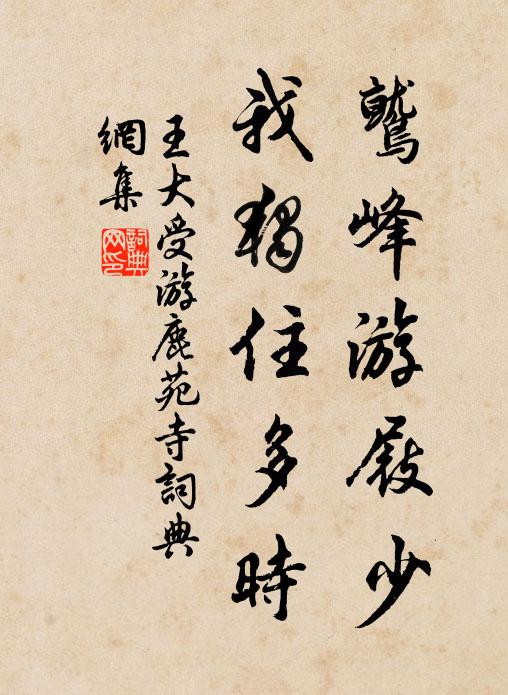 鷲峰游屐少
我獨住多時
王大受游鹿苑寺詞典
網集
詞典網印